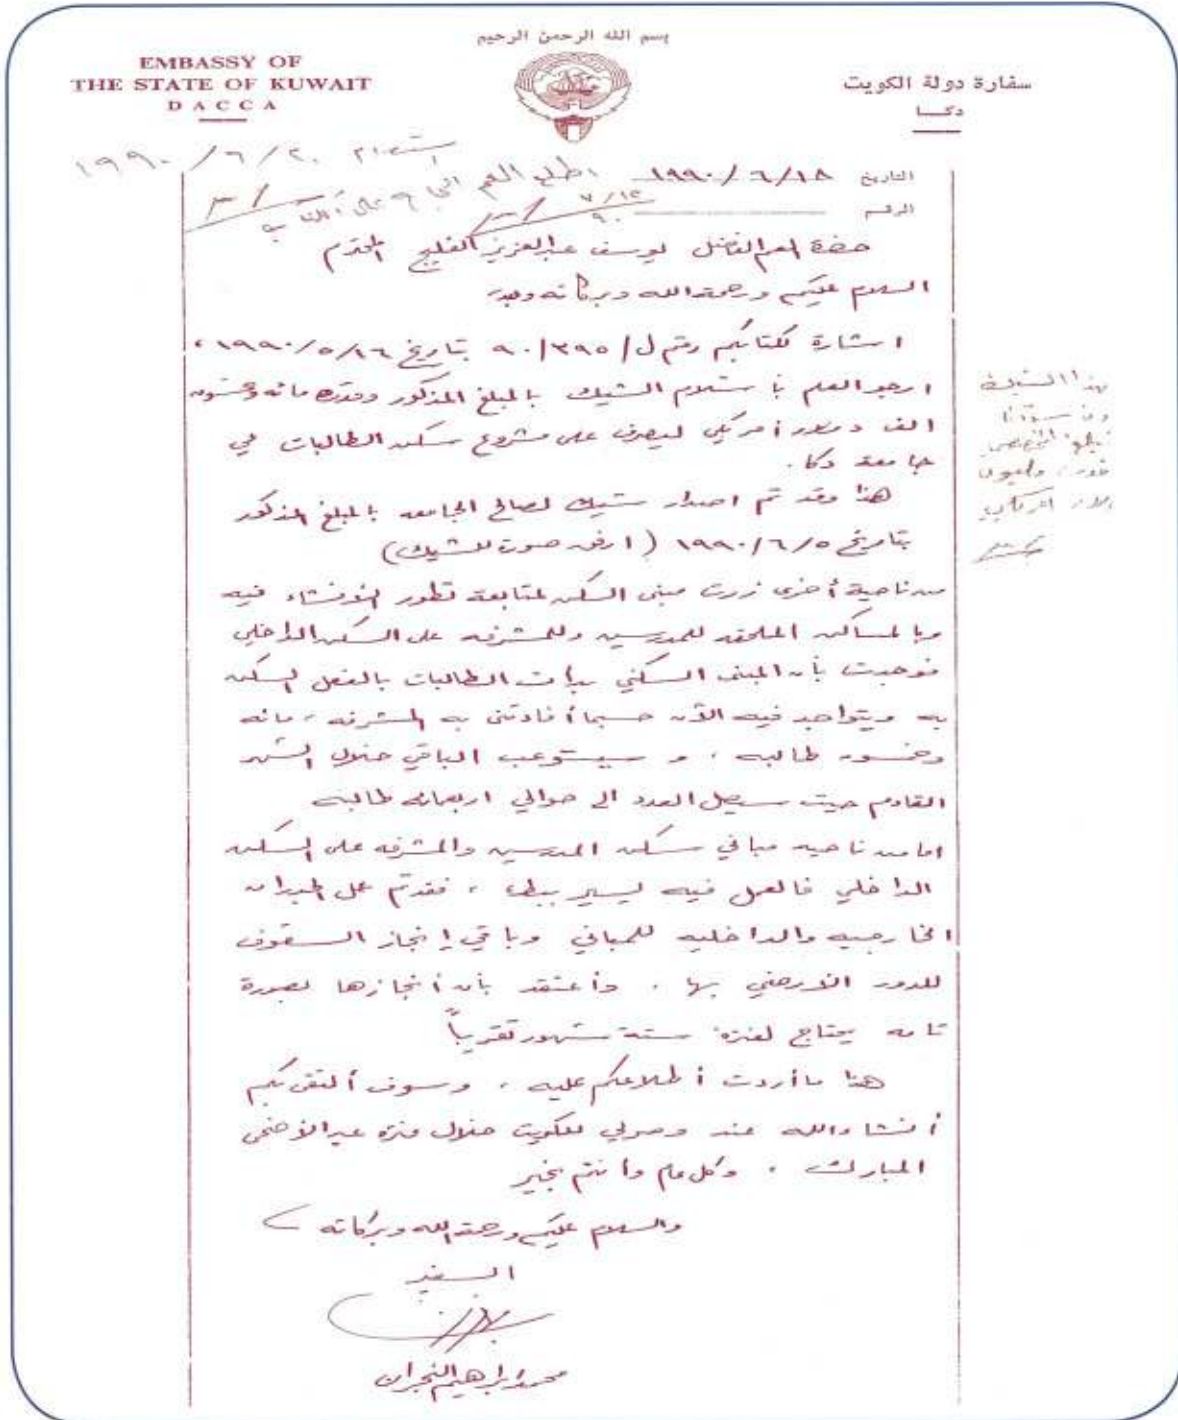 بسم الله الرحمن الرحيم
EMBASSY OF
THE STATE OF KUWAIT
DACCA
سفارة دولة الكويت
دكا
استلم ٢٠/٦/١٩٩٠
التاريخ ١٨/٦/١٩٩٠
اطلع العم
الرقم
٩٠/٧/١٢
حضرة العم الفاضل يوسف عبدالعزيز الفليج المحترم
السلام عليكم ورحمة الله وبركاته وبعد
اشارة لكتابكم رقم ل/٣٩٥/٩٠ بتاريخ ١٦/٥/١٩٩٠،
ارجو العلم باستلام الشيك بالمبلغ المذكور وقدره مائه وخمسون
الف دولار أمريكي ليصرف على مشروع سكن الطالبات في
جامعة دكا.
هذا وقد تم اصدار شيك لصالح الجامعه بالمبلغ المذكور
بتاريخ ٥/٦/١٩٩٠ (ارفق صورة للشيك)
من ناحية أخرى زرت مبنى السكن لمتابعة تطور الانشاء فيه
وبالمساكن الملحقه للمدرسين وللمشرفه على السكن الداخلي
فوجدت بأن المبنى السكني بدأت الطالبات بالفعل السكن
به ويتواجد فيه الآن حسبما أفادتني به المشرفه، مائه
وخمسون طالبه، و سيستوعب الباقي خلال الشهر
القادم حيث سيصل العدد الى حوالي اربعمائه طالبه
اما من ناحيه مباني سكن المدرسين والمشرفه على السكن
الداخلي فالعمل فيه يسير ببطء، فقد تم عمل الجدران
الخارجيه والداخليه للمباني وباقي إنجاز السقوف
للدور الأرضي بها. وأعتقد بأن أنجازها بصورة
تامه يحتاج لفترة ستة شهور تقريباً
هذا ما أردت أطلاعكم عليه، وسوف ألتقي بكم
أنشاء الله عند وصولي للكويت خلال فترة عيد الأضحى
المبارك. وكل عام وأنتم بخير
والسلام عليكم ورحمة الله وبركاته
السفير
محمد ابراهيم النجران
هذا الشيك